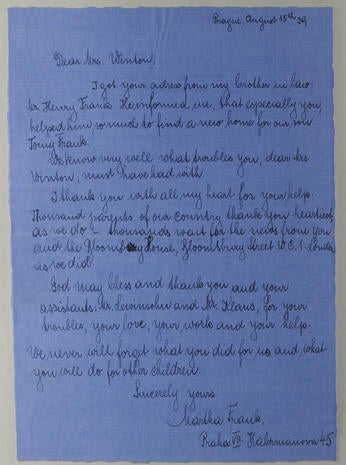 Prague, August 15th 39
Dear Mrs. Winton,
I got your adress from my brother in law:
Mr. Henry Frank. He informed me, that especially you,
helped him so much to find a new home for our son
Tomy Frank.
We know very well what troubles you, dear Mrs
Winton, must have had with.
I thank you with all my heart for your help.
Thousand parents of our country thank you heartiest,
as we do - thousands wait for the news from you
and the Bloomsbury House, Bloomsbury Street W.C.1. London
as we did.
God may bless and thank you and your
assistants: Mr. Lewinsohn and Mr. Klaus, for your
troubles, your love, your works and your help.
We never will forget what you did for us and what
you will do for other children.
Sincerely yours.
Martha Frank,
Praha VII. Habermanova 45